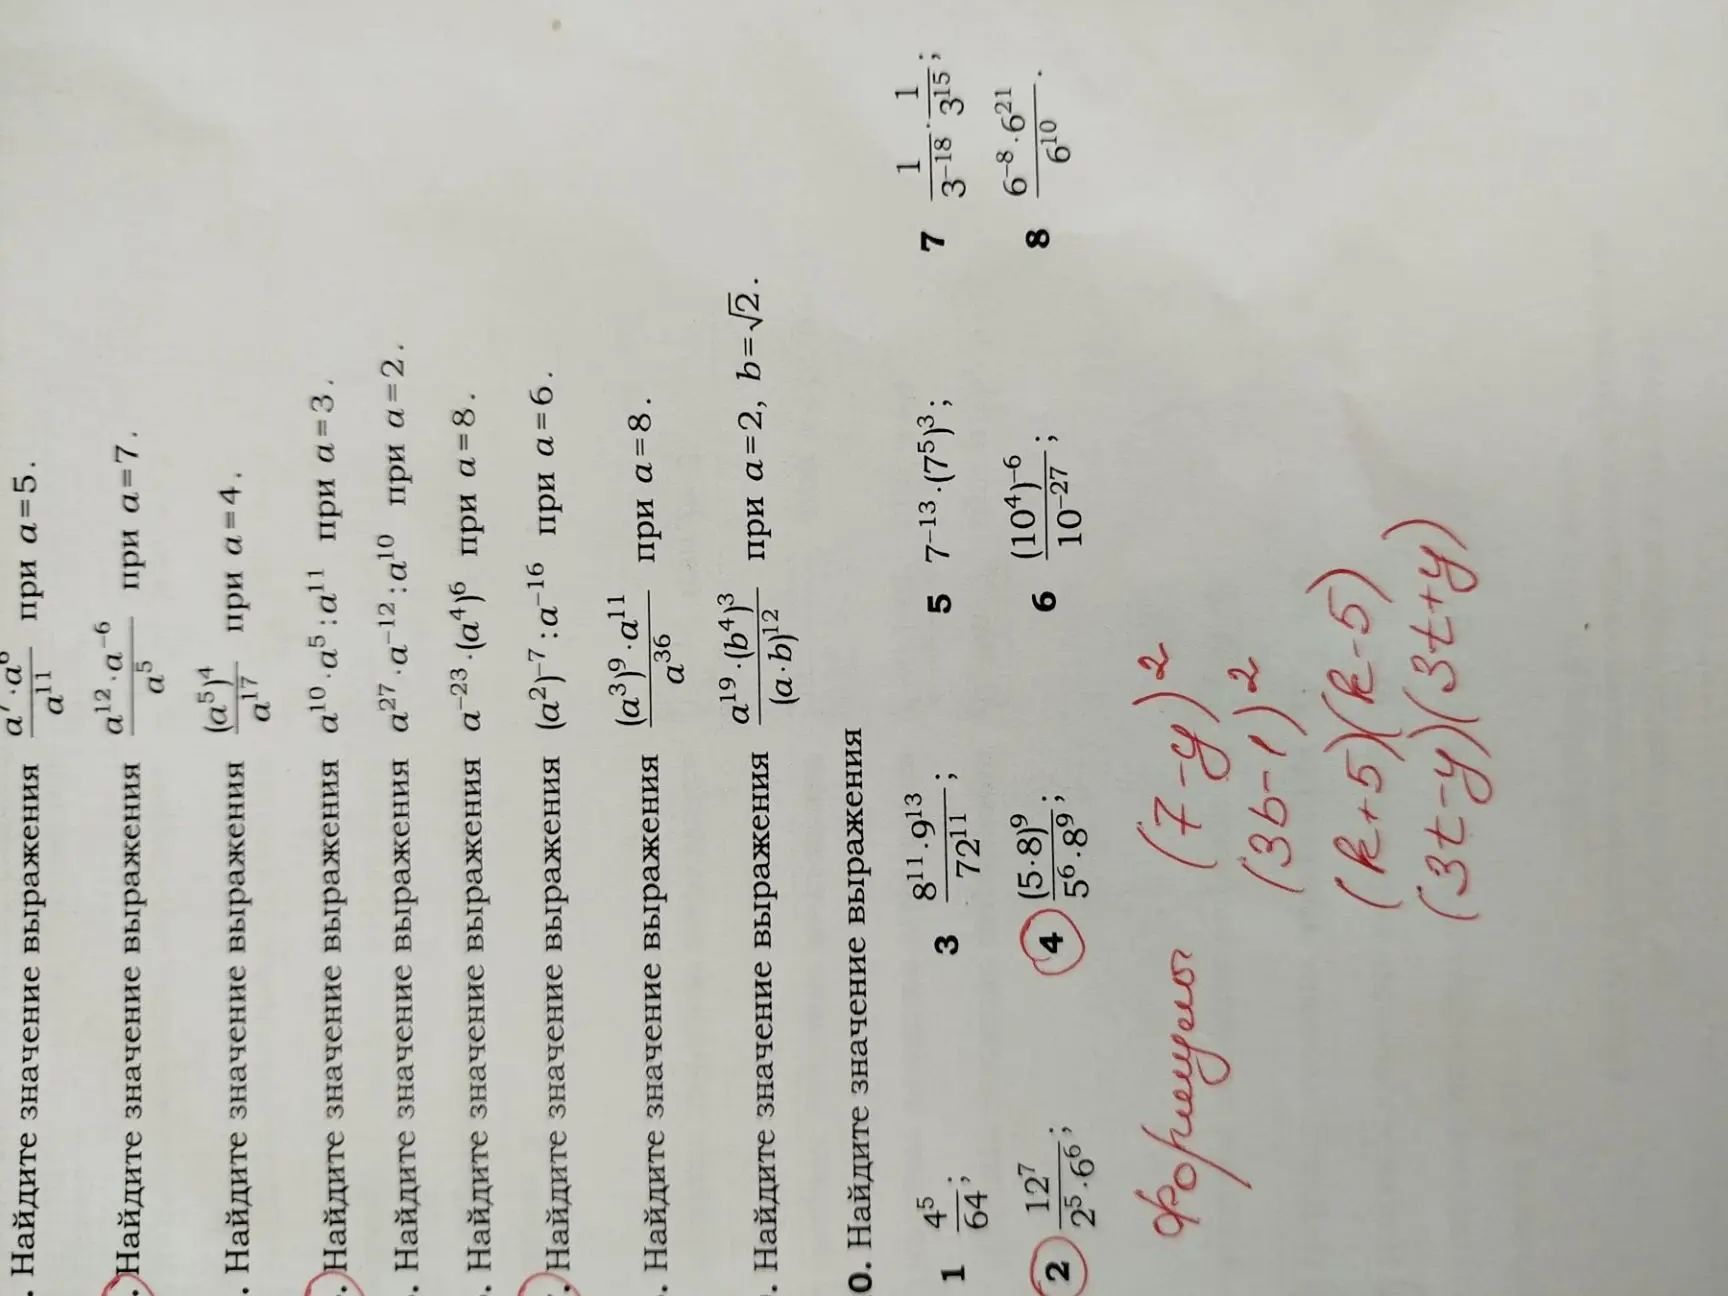 . Найдите значение выражения a⁷·a⁶/a¹¹ при a=5.
. Найдите значение выражения a¹²·a⁻⁶/a⁵ при a=7.
. Найдите значение выражения (a⁵)⁴/a¹⁷ при a=4.
. Найдите значение выражения a¹⁰·a⁵:a¹¹ при a=3.
. Найдите значение выражения a²⁷·a⁻¹²:a¹⁰ при a=2.
. Найдите значение выражения a⁻²³·(a⁴)⁶ при a=8.
. Найдите значение выражения (a²)⁻⁷:a⁻¹⁶ при a=6.
. Найдите значение выражения (a³)⁹·a¹¹/a³⁶ при a=8.
. Найдите значение выражения a¹⁹·(b⁴)³/(a·b)¹² при a=2, b=√2.
0. Найдите значение выражения
1 4⁵/64; 3 8¹¹·9¹³/72¹¹; 5 7⁻¹³·(7⁵)³; 7 1/3⁻¹⁸·1/3¹⁵;
2 12⁷/2⁵·6⁶; 4 (5·8)⁹/5⁶·8⁹; 6 (10⁴)⁻⁶/10⁻²⁷; 8 6⁻⁸·6²¹/6¹⁰.
Формулы (7-y)²
(3b-1)²
(k+5)(k-5)
(3t-y)(3t+y)